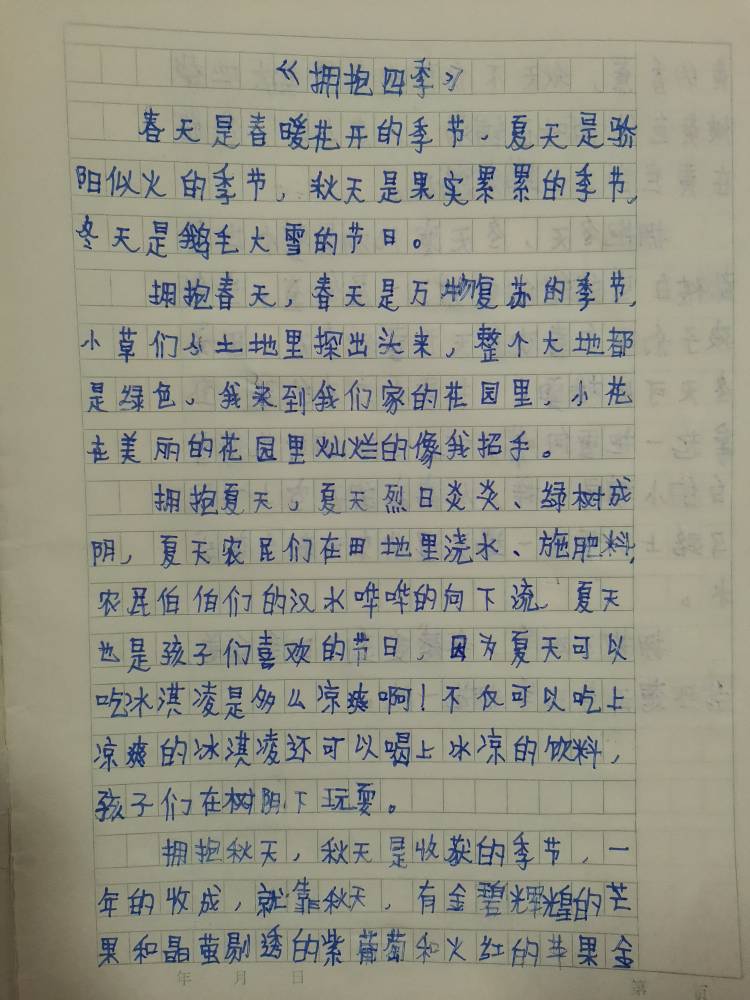 《拥抱四季》
春天是春暖花开的季节、夏天是骄
阳似火的季节,秋天是果实累累的季节,
冬天是鹅毛大雪的节日。
拥抱春天,春天是万物复苏的季节,
小草们从土地里探出头来,整个大地都
是绿色、我来到我们家的花园里,小花
在美丽的花园里灿烂的像我招手。
拥抱夏天,夏天烈日炎炎、绿树成
阴,夏天农民们在田地里浇水、施肥料,
农民伯伯们的汉水哗哗的向下流、夏天
也是孩子们喜欢的节日,因为夏天可以
吃冰淇凌是多么凉爽啊!不仅可以吃上
凉爽的冰淇凌还可以喝上冰凉的饮料,
孩子们在树阴下玩耍。
拥抱秋天,秋天是收获的季节,一
年的收成,就靠秋天,有金碧辉煌的芒
果和晶莹剔透的紫葡萄和火红的苹果金
年 月 日 第 页